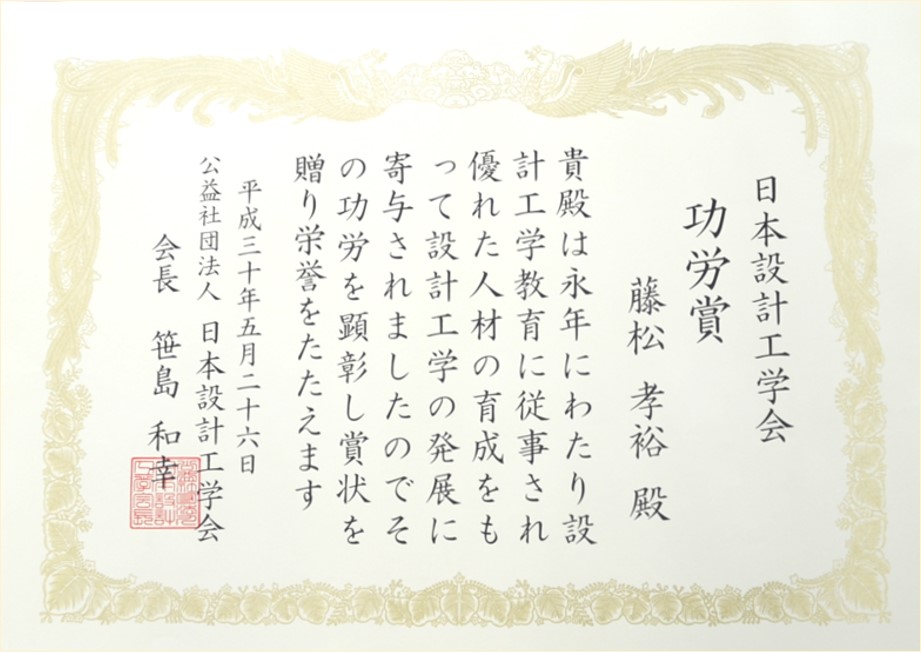 日本設計工学会
功労賞
藤松 孝裕 殿
貴殿は永年にわたり設
計工学教育に従事され
優れた人材の育成をも
って設計工学の発展に
寄与されましたのでそ
の功労を顕彰し賞状を
贈り栄誉をたたえます
平成三十年五月二十六日
公益社団法人 日本設計工学会
会長 笹島 和幸